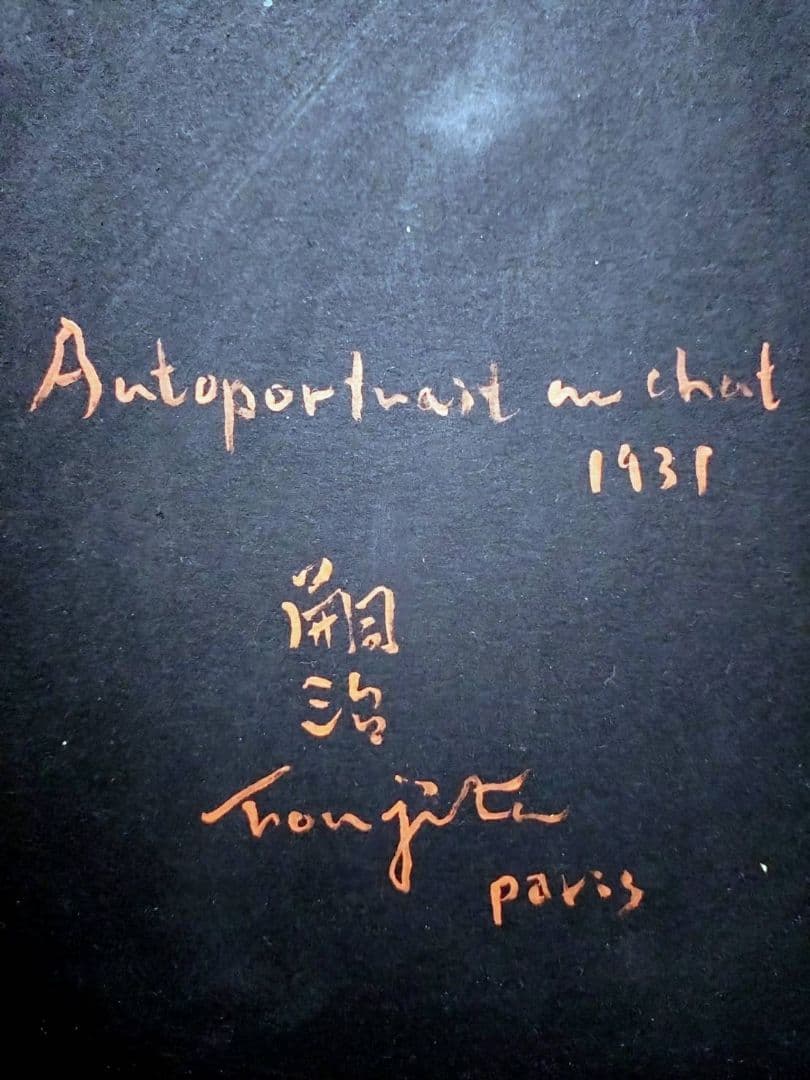 Autoportrait au chat
1931
嗣
治
Foujita
paris